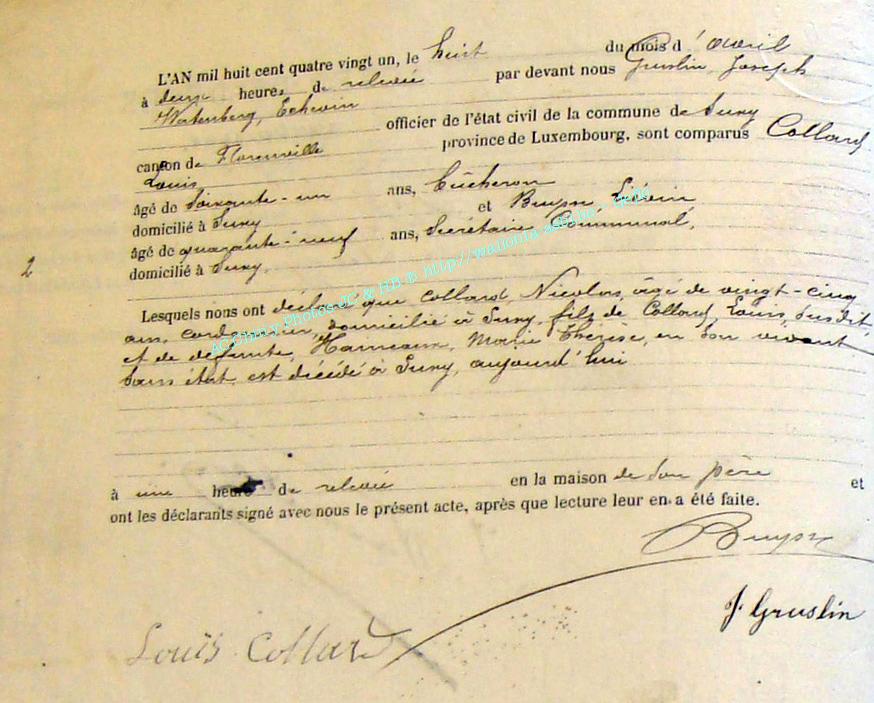 L'AN mil huit cent quatre vingt un, le huit du mois d'avril
à deux heures de relevée par devant nous Gruslin, Joseph
Watenberg, Echevin officier de l'état civil de la commune de Suxy
canton de Florenville province de Luxembourg, sont comparus Collard
Louis
âgé de Soixante-un ans, Bûcheron
domicilié à Suxy et
âgé de quarante-neuf ans, Secrétaire Communal,
domicilié à Suxy,
2
Lesquels nous ont déclaré que Collard, Nicolas, âgé de vingt-cinq
ans, cordonnier, domicilié à Suxy, fils de Collard, Louis, susdit,
et de défunte, Marie Thérèse, en son vivant
sans état, est décédé à Suxy, aujourd'hui
à une heure de relevée en la maison de son père et
ont les déclarants signé avec nous le présent acte, après que lecture leur en a été faite.
J. Gruslin
Louis Collard